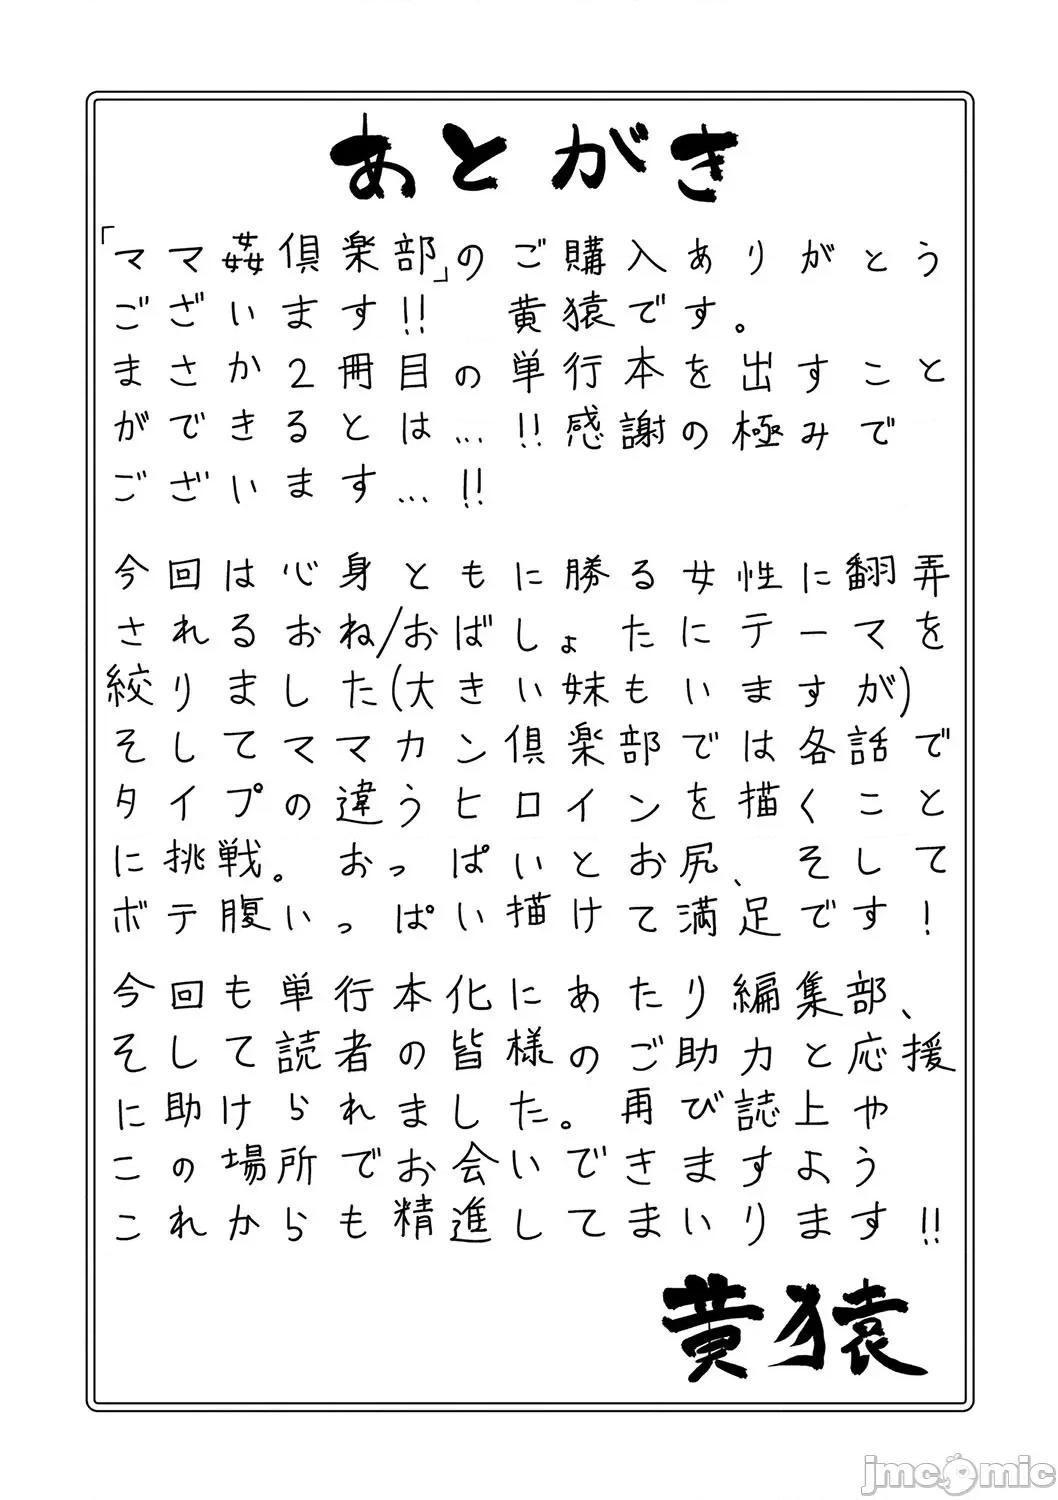 あとがき
「ママ姦倶楽部」のご購入ありがとう
ございます!! 黄猿です。
まさか2冊目の単行本を出すこと
ができるとは…!!感謝の極みで
ございます…!!
今回は心身ともに勝る女性に翻弄
されるおね/おばしょたにテーマを
絞りました(大きい妹もいますが)
そしてママカン倶楽部では各話で
タイプの違うヒロインを描くこと
に挑戦。おっぱいとお尻、そして
ボテ腹いっぱい描けて満足です!
今回も単行本化にあたり編集部、
そして読者の皆様のご助力と応援
に助けられました。再び誌上や
この場所でお会いできますよう
これからも精進してまいります!!
黄猿
jmcomic